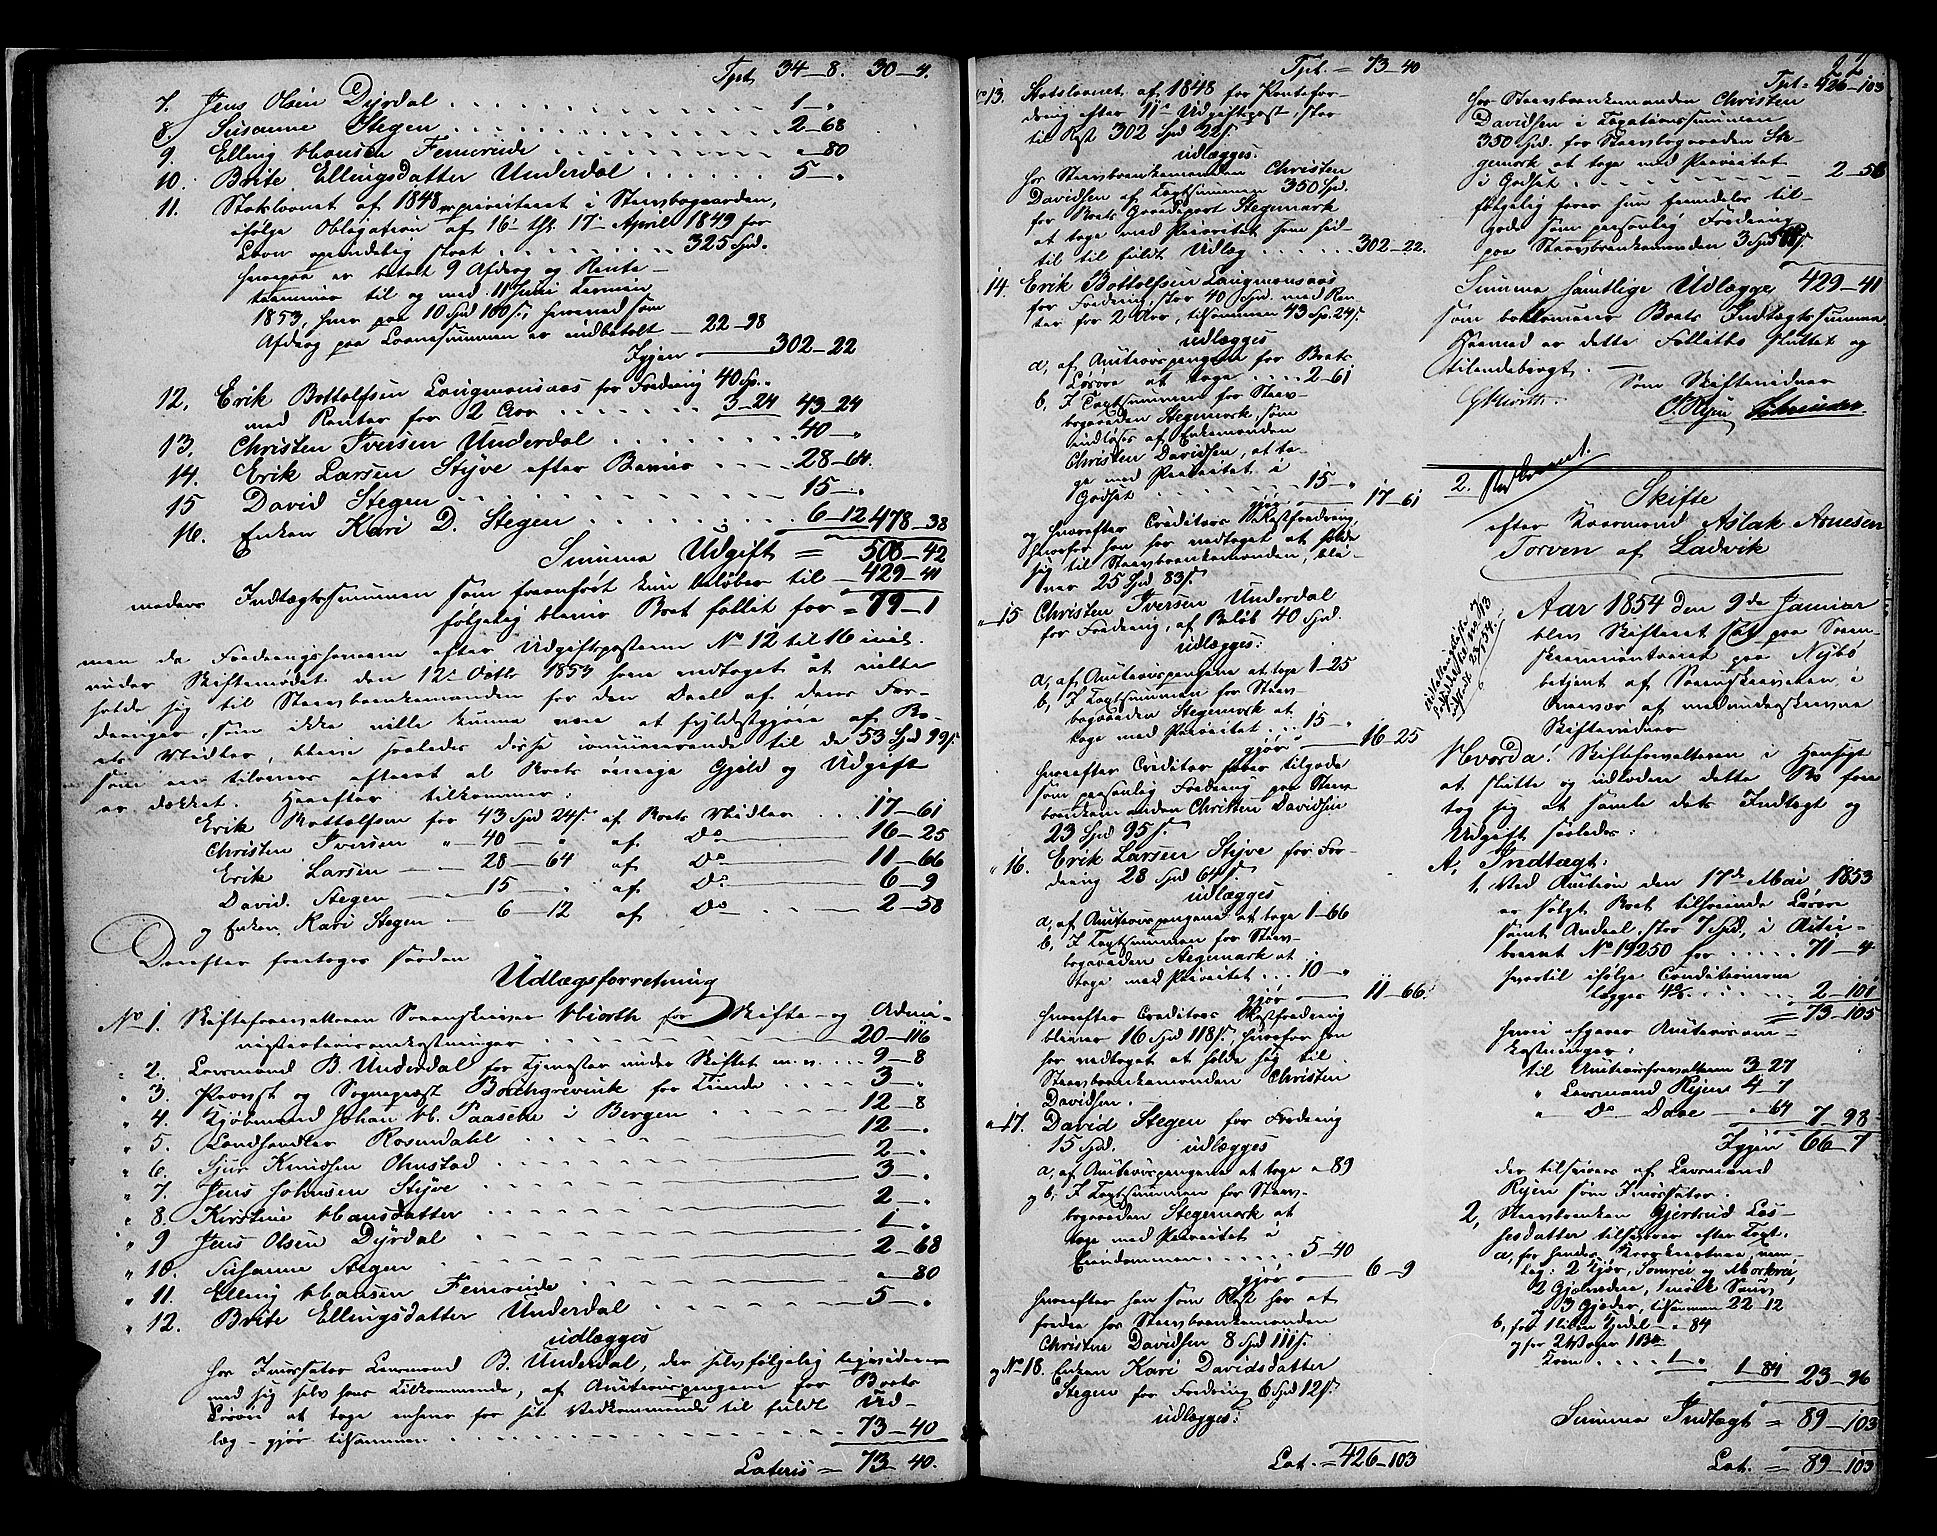 Tpt. 34_8. 30_4.
7. Jens Olsen Dyrdal 1_"
8. Susanne Stegen 2_68
9. Elling Hansen Femreide "_80
10. Brite Ellingsdatter Underdal 5_"
11. Statslaanet af 1848 prioriteret i Stervbogaarden,
ifølge Obligation af 16 thl. 17 April 1849 for
Laan oprindelig stort 325 Spd.
hvorpaa er betalt 9 Afdrag og Rente-
terminer til og med 11 Juni Termin
1853, hver paa 10 Spd 100 s, hvormed som
Afdrag paa Laanesummen er indbetalt _ 22_98
Igjen 302_22
12. Erik Bottolfsen Laugmansaas for Fordring 40 Sp.
med Renter for 2 Aar 3_24 43_24
13. Christen Iversen Underdal 40_"
14. Erik Larsen Styve efter Bevis 28_64.
15 David Stegen 15_"
16. Enken Kari D. Stegen 6_12 478_38
Summa Udgift = 508_42
medens Indtægtssummen som foranført kun beløber til 429_41
følgelig bliver Boet fallit for = 79_1
men da Fordringshaverne efter Udgiftsposterne No 12 til 16 incl.
under Skiftemødet den 12 Octb. 1853 have vedtaget at ville
holde sig til Stervboenkemanden for den Deel af deres For-
dringer, som ikke ville kunne være at fyldestgjøre af Bo-
ets Midler, blive saaledes disse concurrerende til de 53 Spd 99 s.
som er tilovers efterat al Boets øvrige Gjeld og Udgift
er dækket. Herefter tilkommer:
Erik Bottolfsen for 43 Spd 24 s. af Boets Midler 17_61
Christen Iversen " _ 40 _ " af Do 16_25
Erik Larsen _ 28 _ 64 af Do 11_66
David Stegen _ 15 _ " af Do 6_9
og Enken Kari Stegen _ 6_12 af Do 2_58
Derefter foretoges saadan
Udlægsforretning
No 1. Skifteforvalteren Sorenskriver Hiorth for Skifte- og Admi-
nistrationsomkostninger 20_116
" 2. Lensmand B. Underdal for Tjenester under Skiftet m. v. 9_8
" 3. Provst og Sognepræst Borchgrevink for Tiende 3_"
" 4. Kjøbmand Johan H. Paasche i Bergen 12_8
" 5. Landhandler Rosendahl 12_"
" 6. Sjur Knudsen Ohnstad 2_"
" 7. Jens Johnsen Styve 3_"
" 8. Kirstine Hansdatter 2_"
" 9 Jens Olsen Dyrdal 1_"
" 10. Susanne Stegen 2_68
" 11. Elling Hansen Femreide "_80
" 12. Brite Ellingsdatter Underdal 5_"
udlægges
hos Incassator Lensmand B. Underdal, der selvfølgelig liqviderer
med sig selv hans Tilkommende, af Auctionspengene for Boets
Løsøre at tage enhver for sit Vedkommende til fuldt Ud-
læg _ gjør tilsammen 73_40
Lateris = 73_40.
Tpt. = 73_40
No 13. Statslaanet af 1848 for Panteфor-
dring efter 11te Udgiftspost, stor
til Rest 302 Spd 22 s.
udlægges
hos Stervboenkemanden Christen
Davidsen af Taxtsummen 350 Spd.
for Boets Gaardepart Stegemark
at tage med Prioritet som hid-
til til fuldt Udlæg 302_22.
" 14. Erik Bottolfsen Laugmansaas
for Fordring, stor 40 Spd. med Ren-
ter for 2 Aar, tilsammen 43 Sp. 24 s.
udlægges
a, af Auctionspengene for Boets
Løsøre at tage 2_61
b, I Taxtsummen for Sterv-
bogaarden Stegemark, som
indløses af Enkemanden
Christen Davidsen, at ta-
ge med Prioritet i
Godset 15_"
gjør 17_61
og hvorefter Creditors Restfordring,
hvorfor han har vedtaget at holde
sig til Stervboenkemanden, bli-
ver 25 Spd 83 s.
" 15 Christen Iversen Underdal
for Fordring, af Beløb 40 Spd.
udlægges:
a, af Auctionspengene at tage 1_25
b, I Taxtsummen for Sterv-
bogaarden Stegemark at
tage med Prioritet 15_"
gjør 16_25
hvorefter Creditor haver tilgode
som personlig Fordring paa Sterv-
boenkemanden Christen Davidsen
23 Spd 95 s.
" 16. Erik Larsen Styve for For-
dring 28 Spd 64 s.
udlægges
a, af Auctionspengene at tage 1_66
b, I Taxtsummen for Sterv-
bogaarden Stegemark at
tage med Prioritet 10_"
gjør 11_66.
hvorefter Creditors Restfordring
bliver 16 Spd 118 s., hvorfor han
har vedtaget at holde sig til
Stervboenkemanden Christen
Davidsen.
" 17. David Stegen for Fordring
15 Spd. udlægges
a, af Auctionspengene at tage "_89
og b, I Taxtsummen for Sterv-
bogaarden Stegemark at
tage med Prioritet i
Eiendommen 5_40
gjør 6_9
hvorefter han som Rest har at
fordre hos Stervboenkemanden
Christen Davidsen 8 Spd 111 s.
og No 18. Enken Kari Davidsdatter
Stegen for Fordring 6 Spd 12 s.
udlægges:
Lat. = 426_103
Tpt = 426_103
hos Stervboenkemanden Christen
Davidsen i Taxationssummen
350 Spd. for Stervbogaarden Ste-
gemark at tage med Prioritet
i Godset 2_58
følgelig haver hun fremdeles til-
gode som personlig Fordring
paa Stervboenkemanden 3 Spd
Summa samtlige Udlægge 429_41
som bekommer Boets Indtægtssumma
Hermed er dette Fallitbo sluttet og
tilendebragt.
Som Skiftevidner
GHiorth
2.
Skifte
efter Kaarmand Aslak Arnesen
Torven af Ladvik
Aar 1854 den 9de Januar
blev Skifteret sat paa Soren-
skrivercontoret paa Nybø
betjent af Sorenskriveren, i
Overvær af medunderskrevne
Skiftevidner
Hvorda! Skifteforvalteren i Hensigt
at slutte og udlodde dette Bo fore-
tog sig at samle dets Indtægt og
Udgift saaledes:
A, Indtægt:
1. Ved Auction den 17de Mai 1853
er solgt Boet tilhørende Løsøre
samt Andeel, stor 7 Spd, i Auti-
bevent No 19250 for 71_4
hvortil ifølge Conditionerne
lægges 4% 2_101
= 73_105
hvori afgaaer Auctionsom-
kostninger:
til Auctionsforvalteren 3_27
" Lensmand Rijen 4_7
" Do Daae "_64 7_98
Igjen 66_7
der tilsvares af Lensmand
Rijen som Incassator.
2, Stervboenken Gjertrud Las-
sesdatter tilsvarer efter Taxt.
a, for hendes Kaarkreature, nem-
lig: 2 Kjør, Somrei og Morkrei,
2 Gjeldnedne, 1 mørk Sau,
og 3 Gjeder, tilsammen 22_12
b, for 1 liden Kjedel "_84
og for 2 Voger
Korn 1_"
1_84 23_96
Summa Indtægt = 89_103
Lat. = 89_103